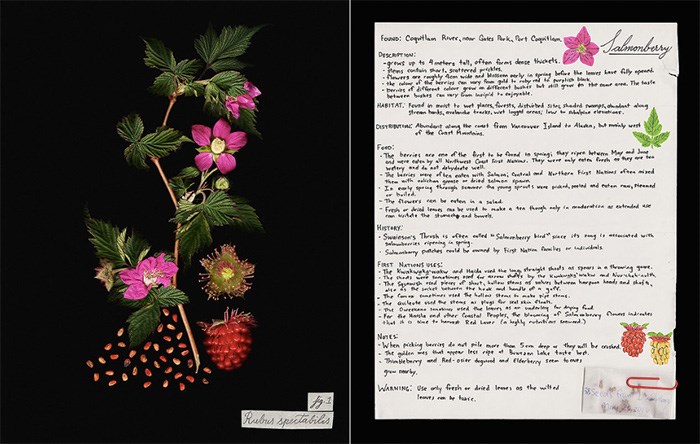 fig. 1
Rubus spectabilis
Salmonberry
FOUND: Coquitlam River, near Gates Park, Port Coquitlam.
DESCRIPTION:
- grows up to 4 meters tall, often forms dense thickets.
- stems contain short, scattered prickles.
- flowers are roughly 4cm wide and blossom early in spring before the leaves have fully opened.
- the colour of the berries can vary from gold to ruby red to purplish black.
- berries of different colour grow on different bushes but still grow in the same area. The taste
between bushes can vary from insipid to enjoyable.
HABITAT: Found in moist to wet places, forests, disturbed sites, shaded swamps, abundant along
stream banks, avalanche tracks, wet logged areas; low to subalpine elevations.
DISTRIBUTION: Abundant along the coast from Vancouver Island to Alaska, but mainly west
of the Coast Mountains.
FOOD:
- The berries are one of the first to be found in spring; they ripen between May and June
and were eaten by all Northwest Coast First Nations. They were only eaten fresh as they are too
watery and do not dehydrate well.
- The berries were often eaten with Salmon; Central and Northern First Nations often mixed
them with oolichan grease or dried salmon spawn.
- In early spring through summer the young sprouts were picked, peeled and eaten raw, steamed
or boiled.
- The flowers can be eaten in a salad.
- Fresh or dried leaves can be used to make a tea though only in moderation as extended use
can irritate the stomach and bowels.
HISTORY:
- Swainson's Thrush is often called "Salmonberry bird" since its song is associated with
salmonberries ripening in spring.
- Salmonberry patches could be owned by First Nation families or individuals.
FIRST NATIONS USES:
- The Kwakwa̱ka̱'wakw and Haida used the long straight shoots as spears in a throwing game.
- The shoots were sometimes used for arrow shafts by the
- The Squamish used pieces of short, hollow stems as valves between harpoon heads and shafts,
also as the socket between the hook and handle of a gaff.
- The Comox sometimes used the hollow stems to make pipe stems.
- The used the stems as plugs for seal skin floats.
- The used the leaves as an underlay for drying food.
- For the Haisla and other Coastal Peoples, the blooming of Salmonberry flowers indicates
that it is time to harvest Red Laver (a highly nutritious seaweed.)
NOTES:
- When picking berries do not pile more than 5cm deep or they will be crushed.
- The golden ones that appear less ripe at Buntzen Lake taste best.
- Thimbleberry and Red-osier dogwood and Elderberry seem to
grow nearby.
WARNING: Use only fresh or dried leaves as the wilted
leaves can be toxic.